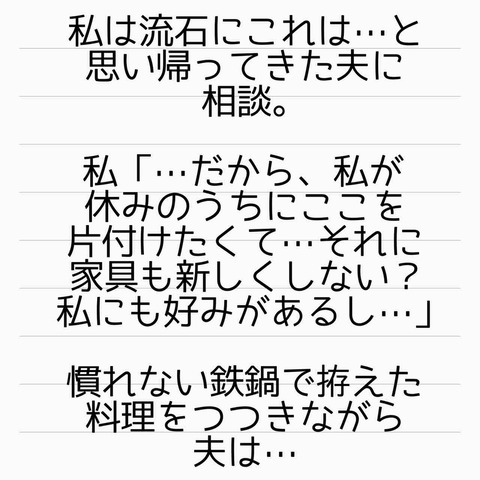 私は流石にこれは…と
思い帰ってきた夫に
相談。
私「…だから、私が
休みのうちにここを
片付けたくて…それに
家具も新しくしない？
私にも好みがあるし…」
慣れない鉄鍋で拵えた
料理をつつきながら
夫は…